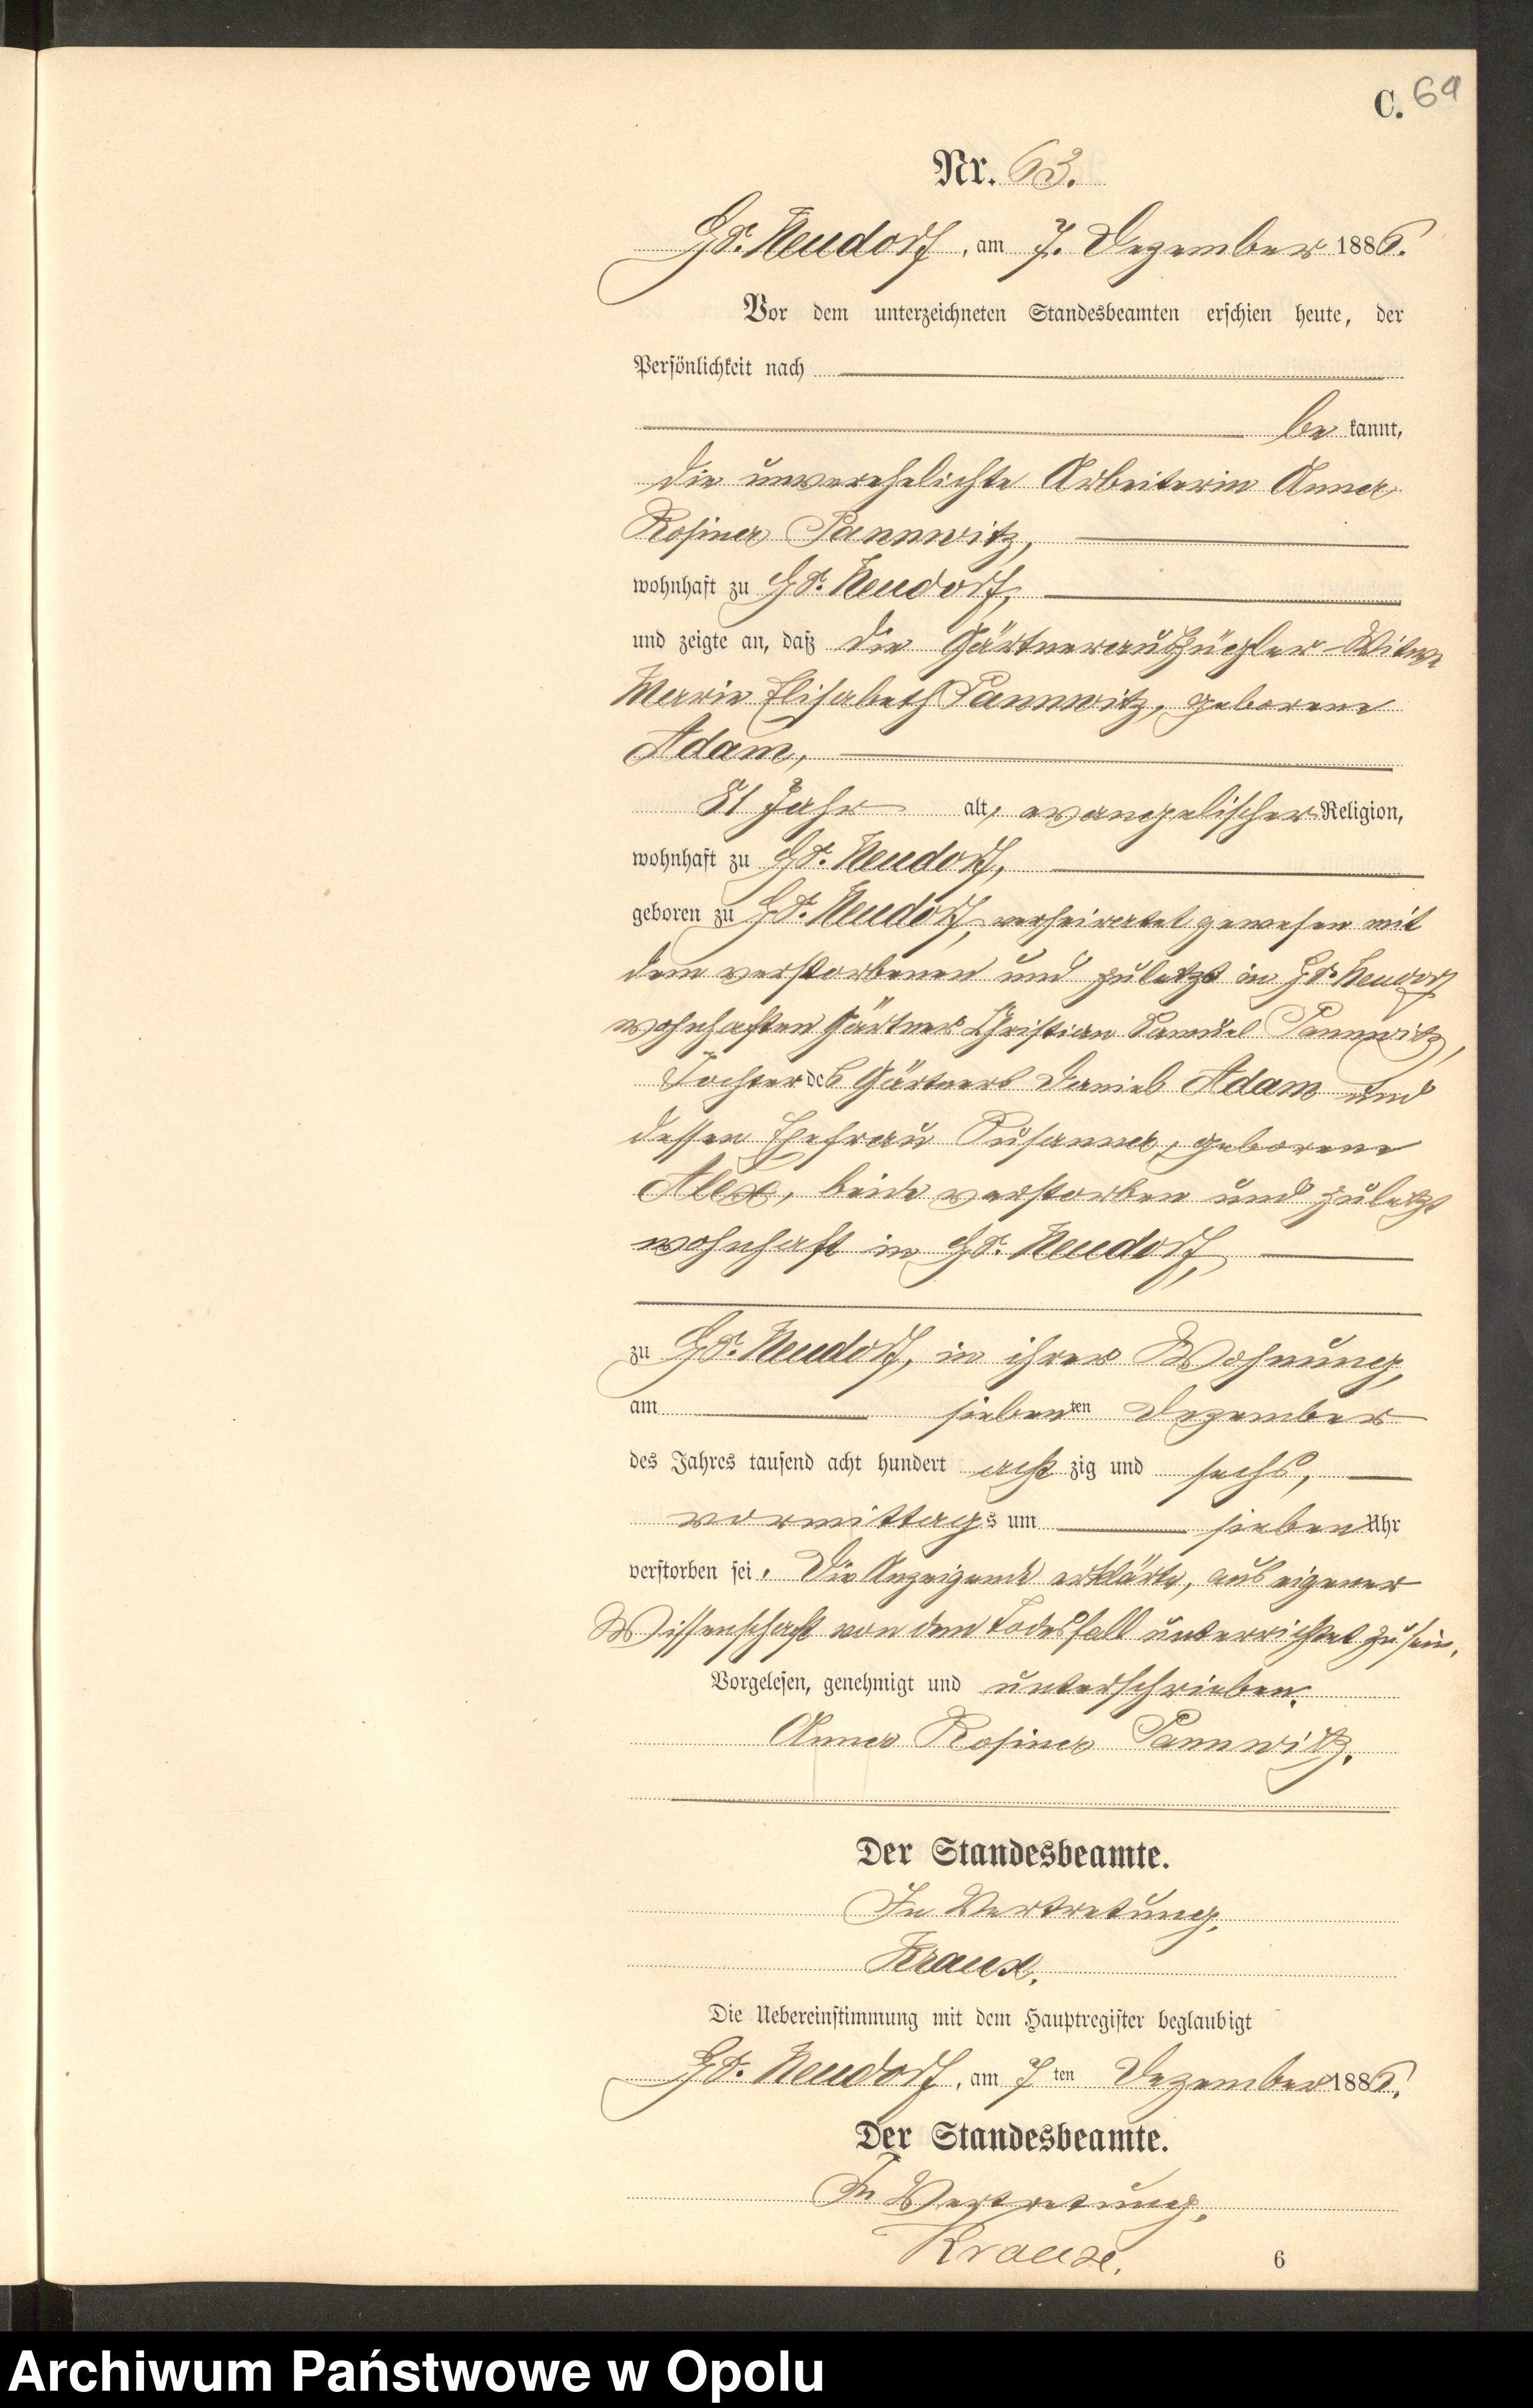 C. 64
Nr. 63.
Gr. Neudorf, am 7. Dezember 1886.
Vor dem unterzeichneten Standesbeamten erschien heute, der
Persönlichkeit nach
be kannt,
die unverehelichte Arbeiterin Anna
Rosina Pannwitz,
wohnhaft zu Gr. Neudorf,
und zeigte an, daß die Gärtnerauszügler-Witwe
Marie Elisabeth Pannwitz, geborene
Adam,
81 Jahr alt, evangelischer Religion,
wohnhaft zu Gr. Neudorf,
geboren zu Gr. Neudorf, verheiratet gewesen mit
dem verstorbenen und zuletzt in Gr. Neudorf
wohnhaften Gärtner Christian Samuel Pannwitz,
Tochter des Gärtners Daniel Adam und
dessen Ehefrau Susanna, geborene
Alex, beide verstorben und zuletzt
wohnhaft in Gr. Neudorf,
zu Gr. Neudorf, in ihrer Wohnung,
am siebenten Dezember
des Jahres tausend acht hundert acht zig und sechs,
vormittags um sieben Uhr
verstorben sei. Die Anzeigende erklärte, aus eigener
Wissenschaft von dem Todesfall unterrichtet zu sein.
Vorgelesen, genehmigt und unterschrieben.
Anna Rosina Pannwitz.
Der Standesbeamte.
In Vertretung.
Krause.
Die Uebereinstimmung mit dem Hauptregister beglaubigt
Gr. Neudorf, am 7ten Dezember 1886.
Der Standesbeamte.
In Vertretung.
Krause.
6
Archiwum Państwowe w Opolu